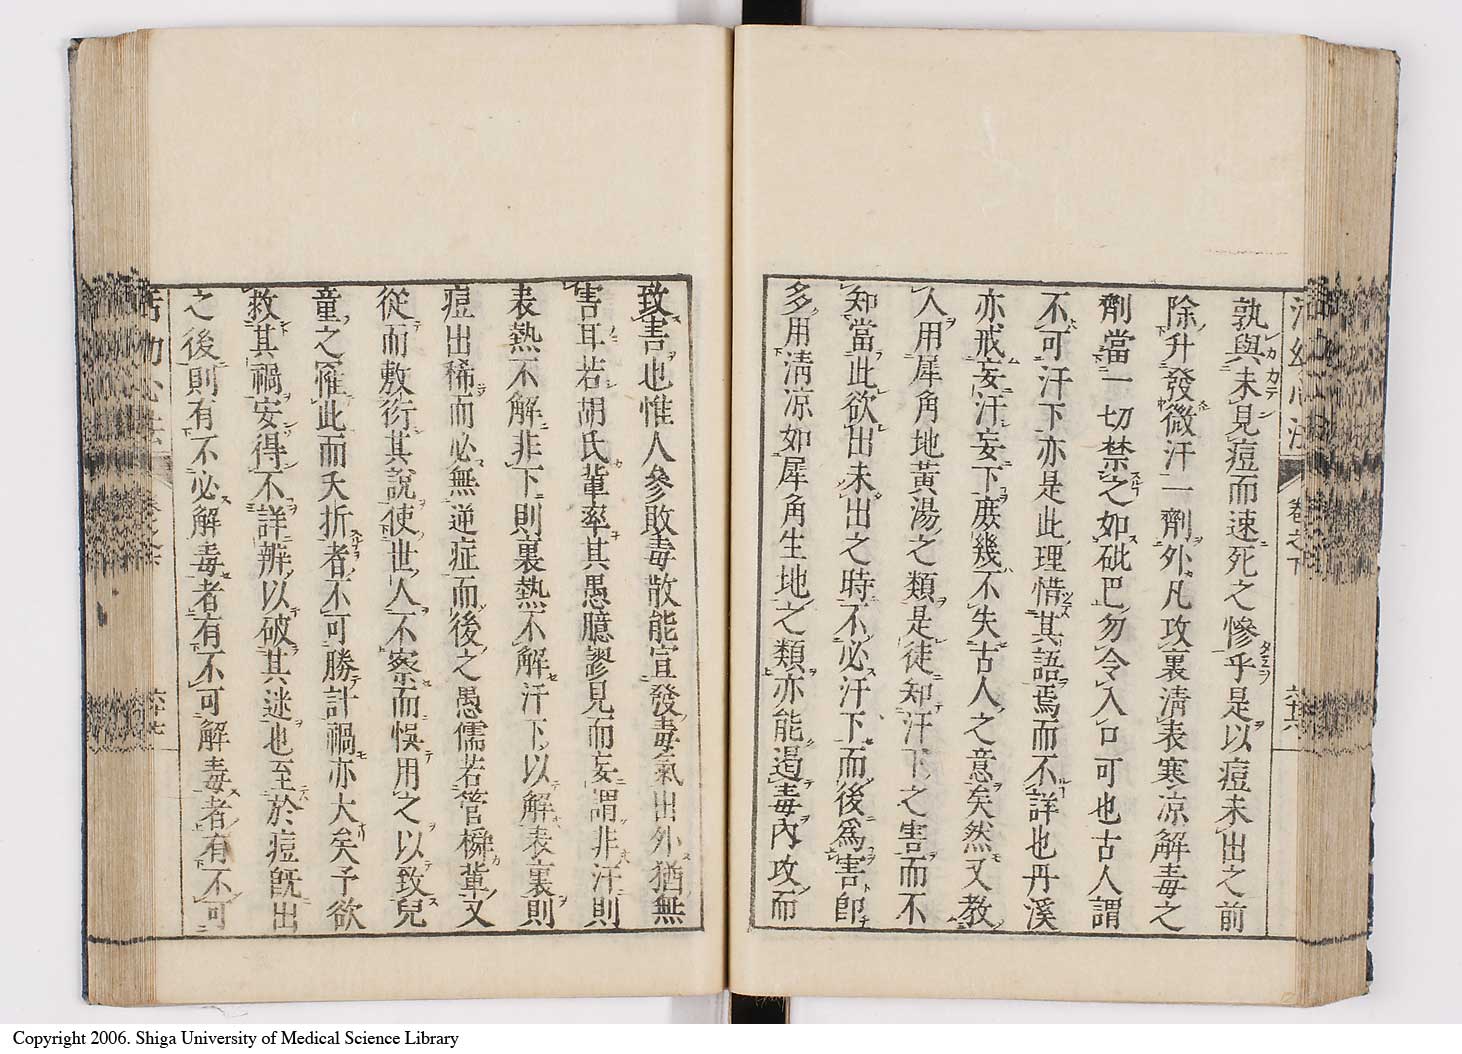 活幼心法 卷之下 六十六
孰與未見痘而速死之慘乎是以痘未出之前
除升發微汗一劑外凡攻裏清表寒凉解毒之
劑當一切禁之如砒巴勿令入口可也古人謂
不可汗下亦是此理惜其語焉而不詳也丹溪
亦戒妄汗妄下庶幾不失古人之意矣然又教
人用犀角地黃湯之類是徒知汗下之害而不
知當此欲出未出之時不必汗下而後爲害卽
多用清凉如犀角生地之類亦能遏毒內攻而
致害也惟人參敗毒散能宣發毒氣出外猶無
害耳若胡氏輩率其愚臆謬見而妄謂非汗則
表熱不解非下則裏熱不解汗下以解表裏則
痘出稀而必無逆症而後之愚儒若管橓輩又
從而敷衍其說使世人不察而悞用之以致兒
童之罹此而夭折者不可勝計禍亦大矣予欲
救其禍安得不詳辨以破其迷也至於痘既出
之後則有不必解毒者有不可解毒者有不可
活幼心法
Copyright 2006. Shiga University of Medical Science Library